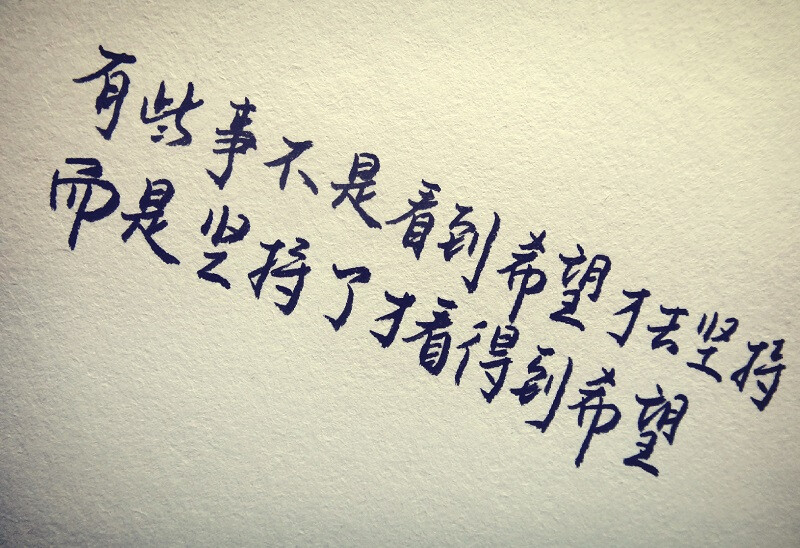 有些事不是看到希望才去坚持
而是坚持了才看得到希望